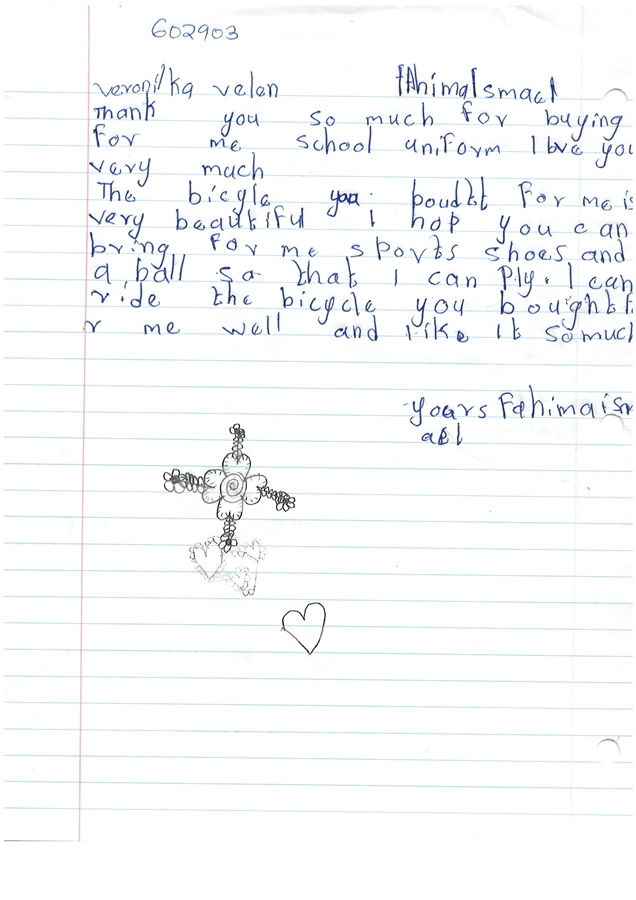 602903
veronika velan fAhimaIsmael
Thank you so much for buying
for me school uniform I love you
very much
The bicyle you boudtt for me is
very beautiful I hop you can
bring for me sports shoes and
a ball so that I can ply. I can
ride the bicycle you bought f
r me well and like it somuch
yours Fahimaism
ael